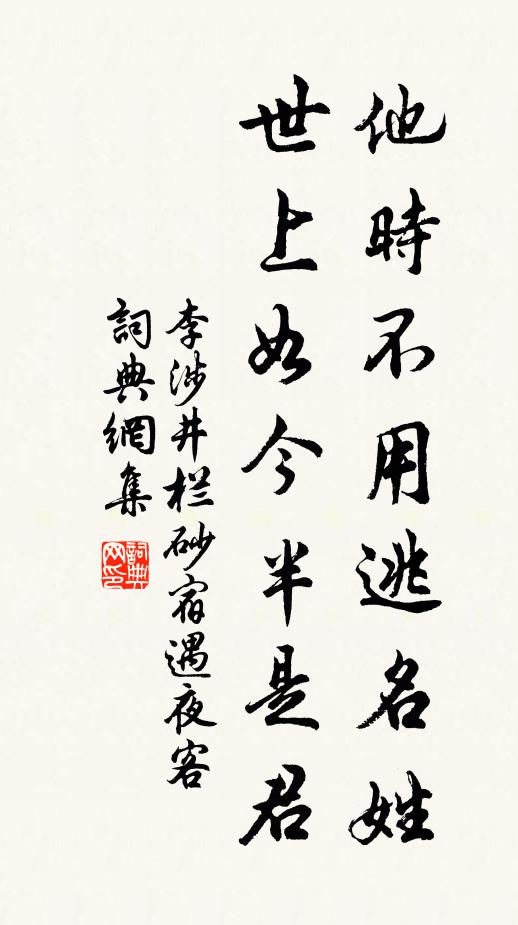 他時不用逃名姓
世上如今半是君
李涉井栏砂宿遇夜客
詞典網集
詞典网印